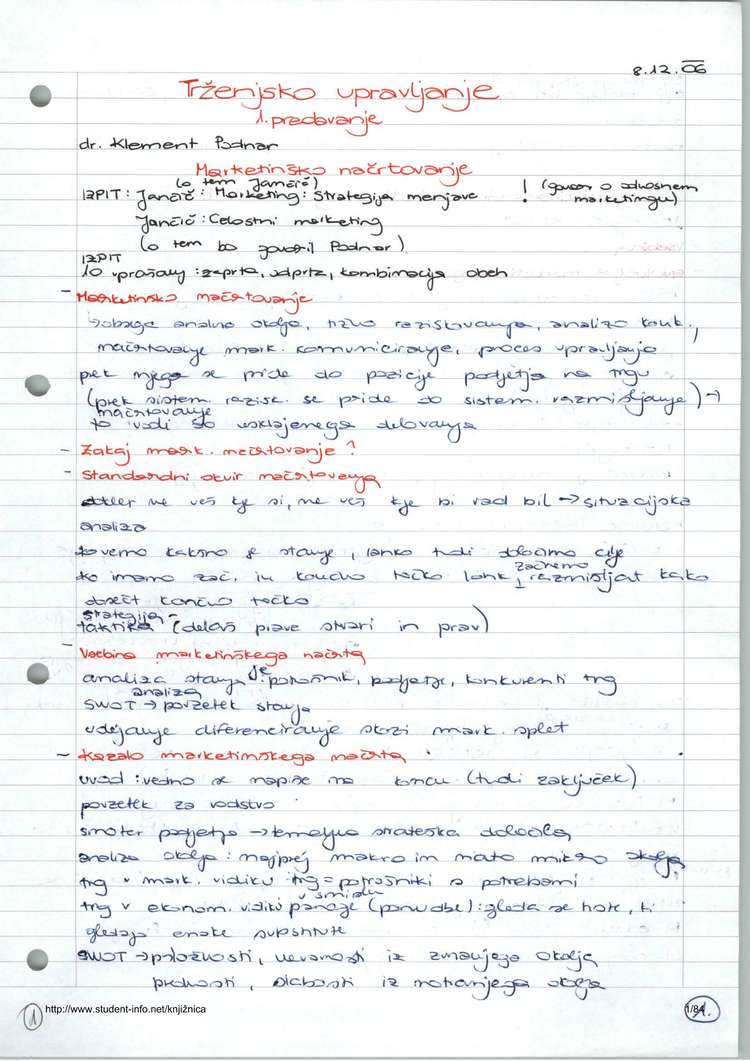 8.12.06
Trženjsko upravljanje
1. predavanje
dr. Klement Podnar
Marketinško načrtovanje
(o tem Jančič)
IZPIT: Jančič: Marketing: Strategija menjave ! (govora o odnosnem
marketingu)
Jančič: Celostni marketing
(o tem bo govoril Podnar)
IZPIT
10 vprašanj: zaprta, odprta, kombinacija obeh
- Marketinško načrtovanje
analizo okolja, raziskovanja, analizo konk.,
načrtovanje mark. komuniciranje, proces upravljanja
prek njega se pride do pozicije podjetja na trgu
(prek sistem. razisk. se pride do sistem. razmišljanja) →
načrtovanje
to vodi do usklajenega delovanja
- Zakaj mark. načrtovanje?
- Standardni okvir načrtovanja
dokler ne veš kje si, ne veš kje bi rad bil → situacijska
analiza
ko vemo kakšno je stanje, lahko tudi določimo cilje
ko imamo zač. in končno točko lahk začnemo razmišljat kako
doseči končno točko
strategija -
taktika (delaš prave stvari in prav)
- Vsebina marketinškega načrta
analiza stanja potrošnik, podjetje, konkurenti trg
analiza
SWOT → povzetek stanja
udejanje diferenciranje skozi mark. splet
- Kazalo marketinškega načrta
uvod: vedno se napiše na koncu (tudi zaključek)
povzetek za vodstvo
smoter podjetja → temeljna strateška določila
analiza okolja: najprej makro in nato mikro okolja
trg v mark. vidiku trg = potrošniki s potrebami
v smislu
trg v ekonom. vidiku panoge (ponudbe): gleda se hote, ki
gledajo enake substitute
SWOT → priložnosti, nevarnosti iz zunanjega okolja
prednosti, slabosti iz notranjega okolja
1 http://www.student-info.net/knjižnica 1/84 1.